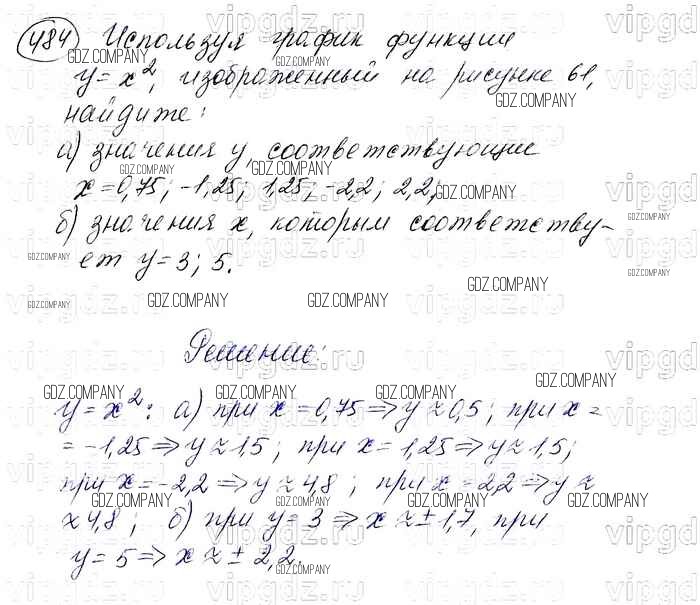 484 Используя график функции
y = x², изображенный на рисунке 61,
найдите:
а) значения y, соответствующие
x = 0,75; -1,25; 1,25; -2,2; 2,2;
б) значения x, которым соответству-
ет y = 3; 5.
Решение:
y = x²: а) при x = 0,75 ⇒ y ≈ 0,5; при x =
= -1,25 ⇒ y ≈ 1,5; при x = 1,25 ⇒ y ≈ 1,5;
при x = -2,2 ⇒ y ≈ 4,8; при x = 2,2 ⇒ y ≈
≈ 4,8; б) при y = 3 ⇒ x ≈ ± 1,7, при
y = 5 ⇒ x ≈ ± 2,2.